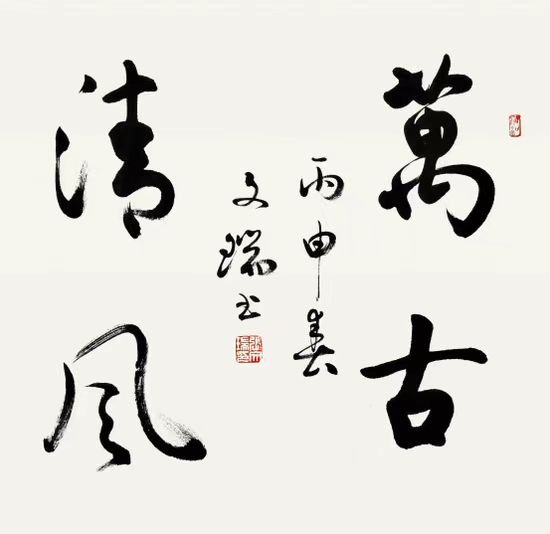 萬古
清風
丙申春
文瑞书